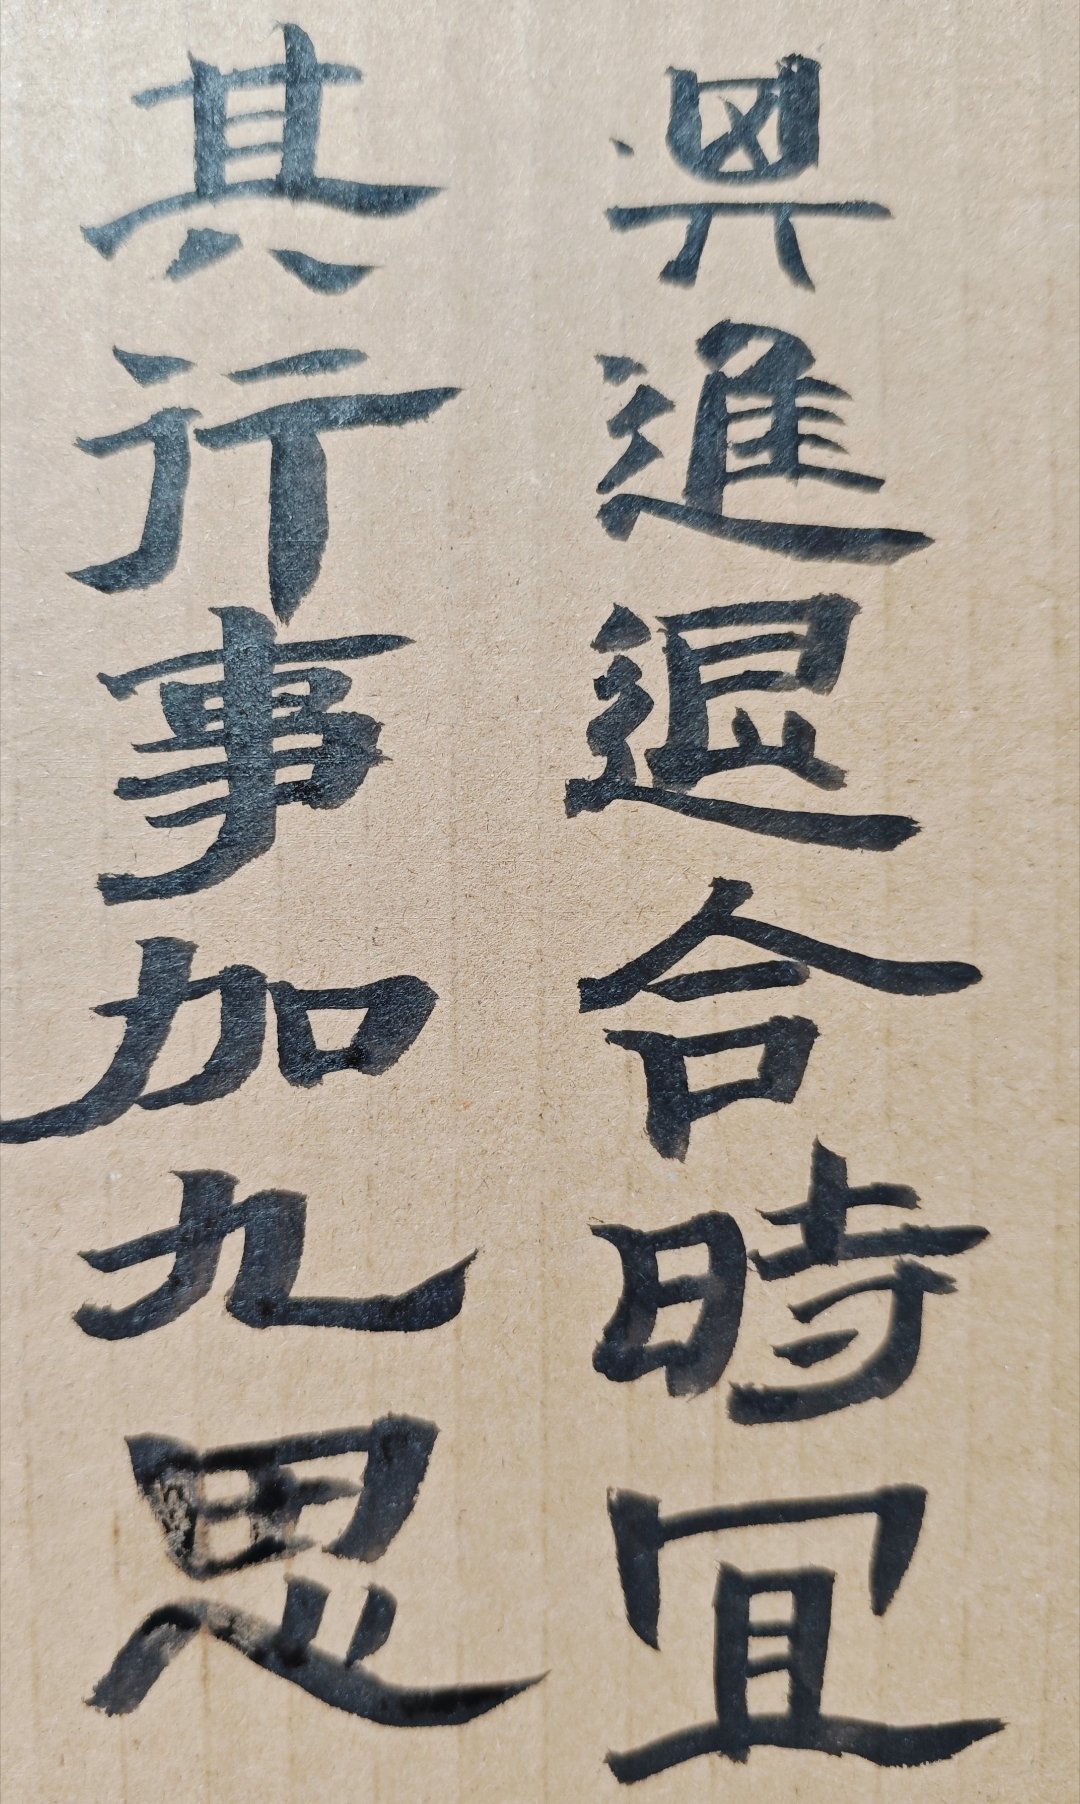 進退合時宜
其行事加九思